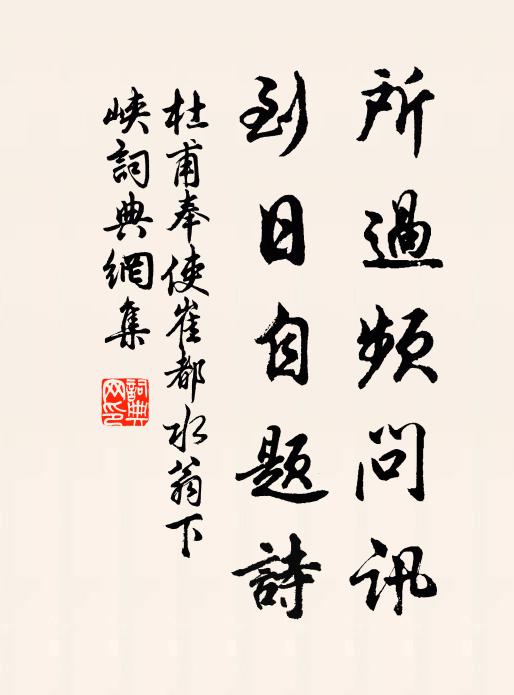 所過頻問訊
到日自題詩
杜甫奉使崔都水翁下
峽詞典網集
詞典
网印